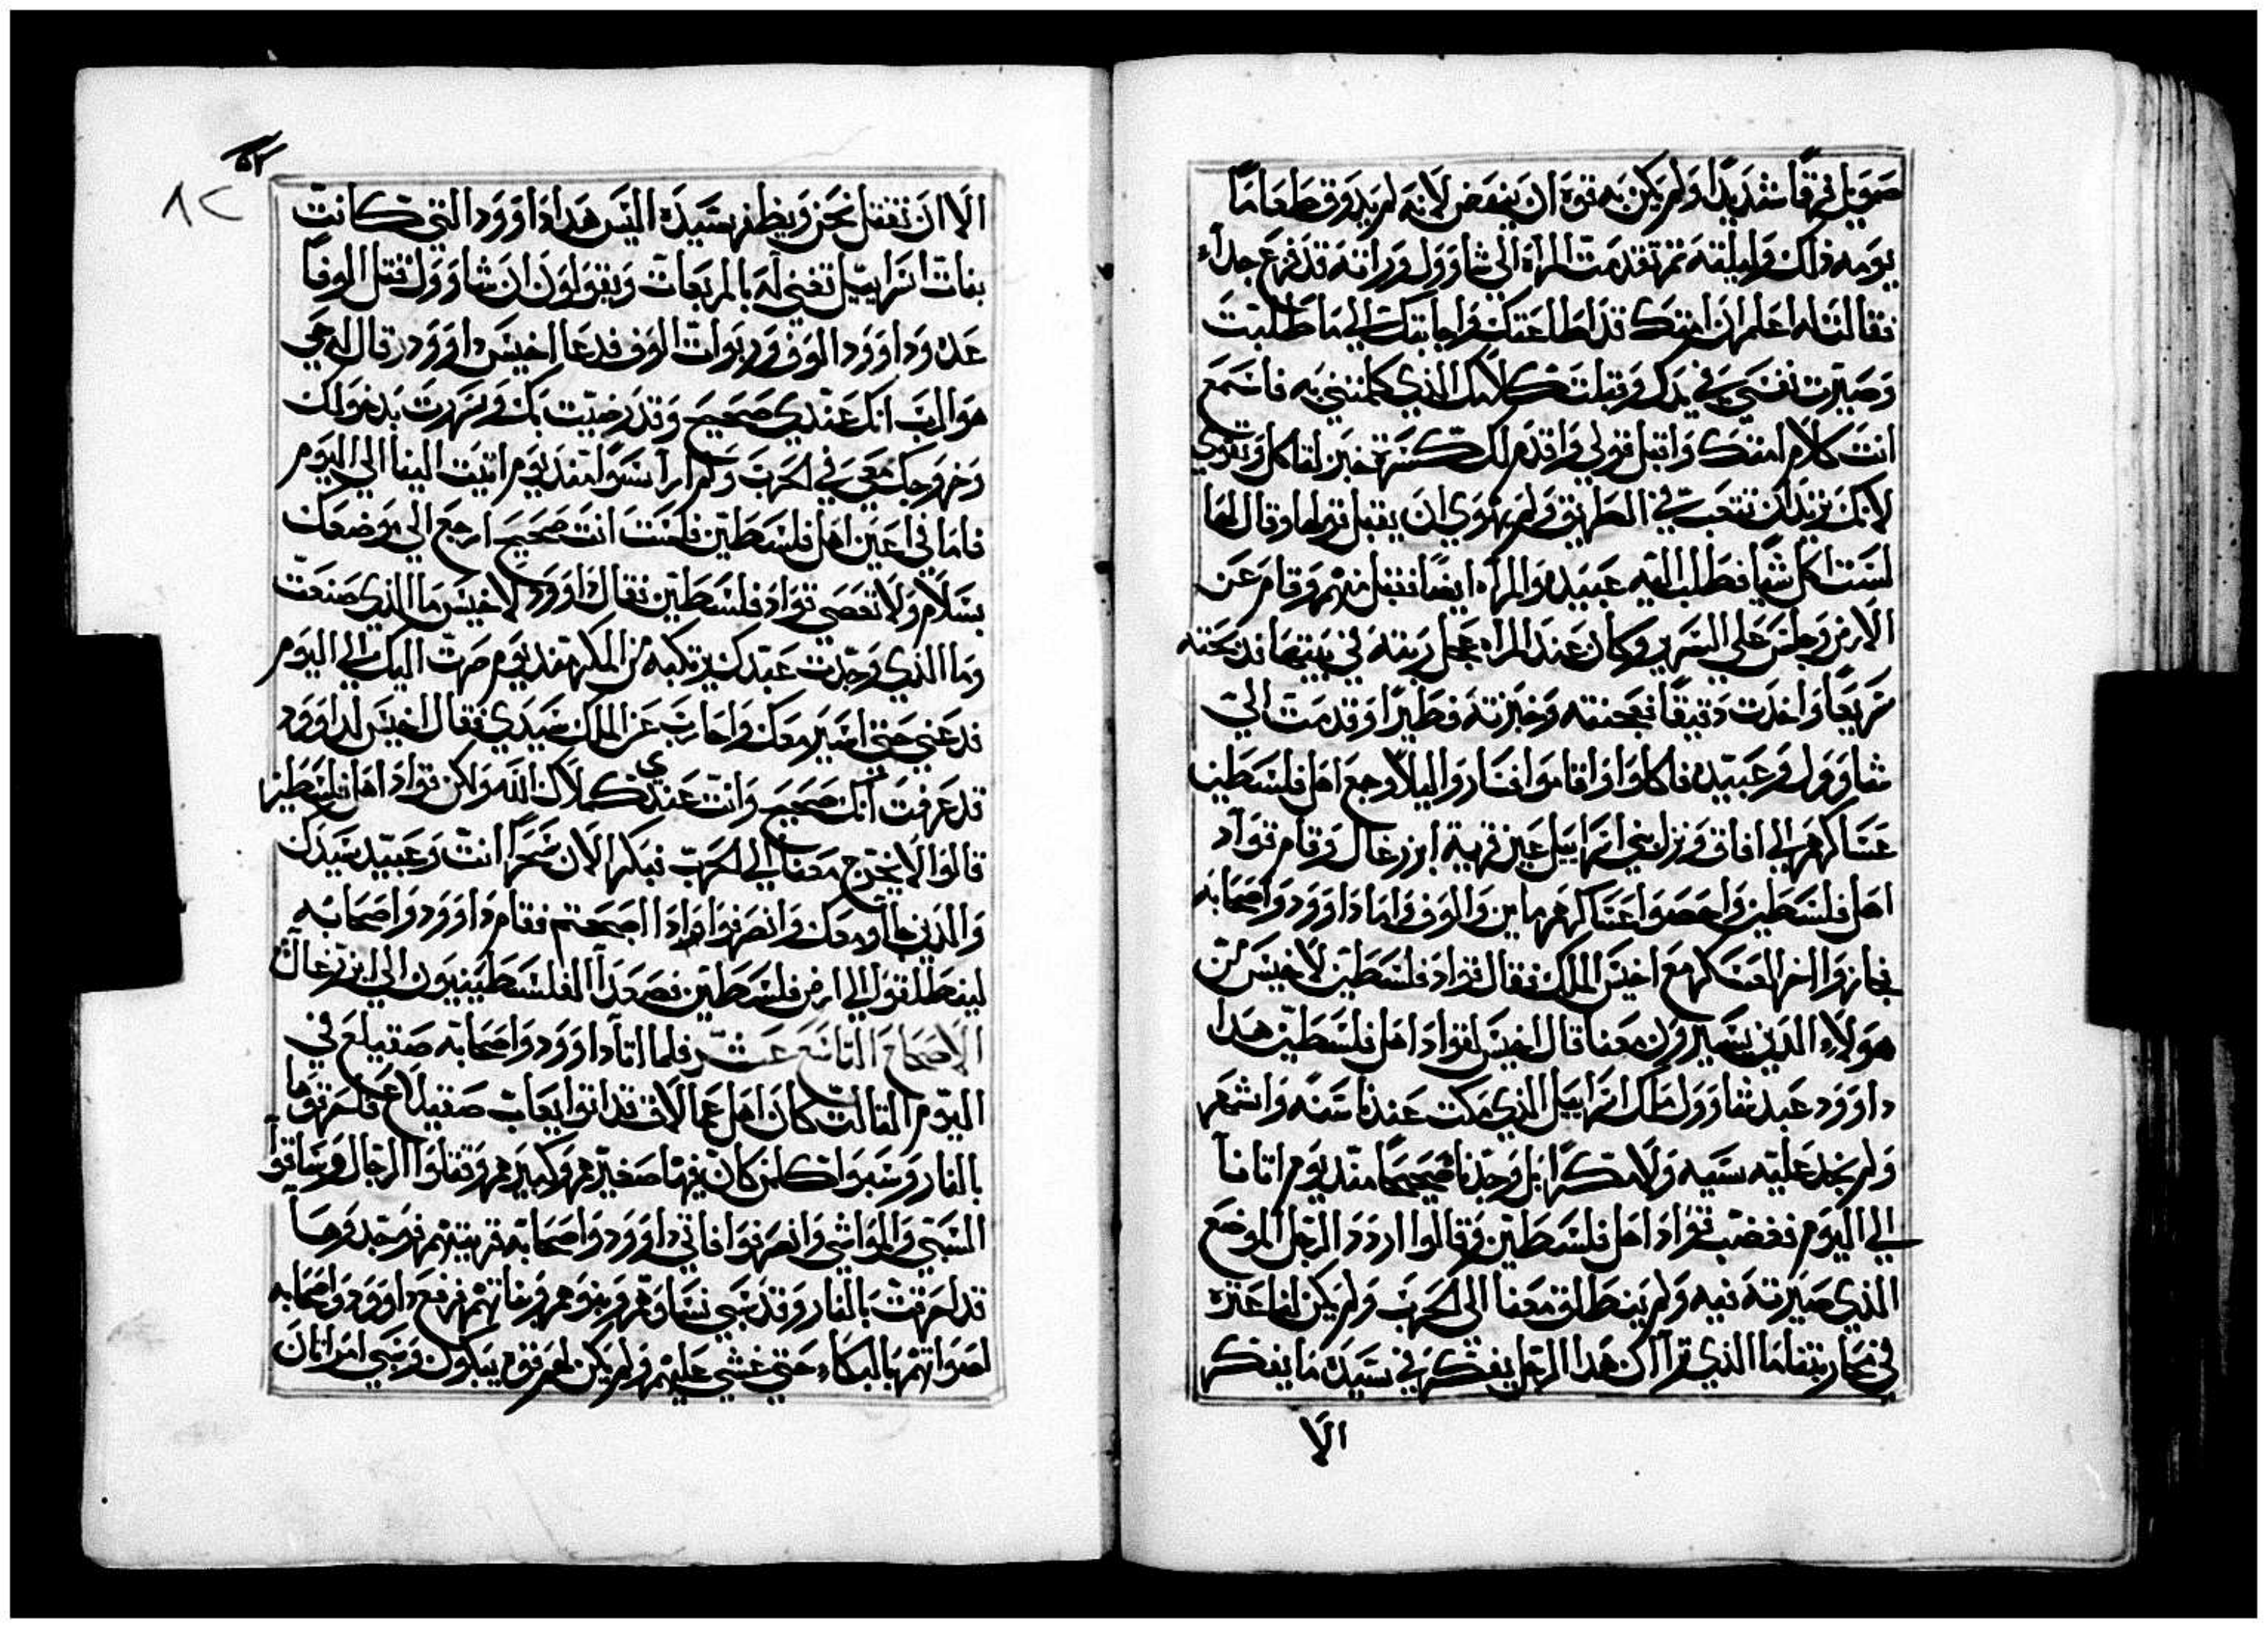 صمويل فرقًا شديدًا ولم يكن به قوة ان ينهض لانه لم يذوق طعامًا
يومه ذلك وليلته ثم تقدمت المراة الي شاوول وراته قد فزع جدآء
فقالت له اعلم ان امتك قد اطاعتك واجابتك الي ما طلبت
وصيرت نفسي في يدك وقبلت كلامك الذي كلمتني به فاسمع
انت كلام امتك واقبل قولي واقدم لك كسرة خبز لتاكل وتقوي
لانك تريد ان تتعب في الطريق ولم يهوي ان يقبل قولها وقال لها
لست اكل شيا فطلب اليه عبيده والمراه ايضا فقبل منهم وقام عن
الارض وجلس علي السرير وكان عند المراه عجل ربته في بيتها فدبحته
سريعًا واخدت دقيقًا فعجنته وخبزته فطيرًا وقدمت الي
شاوول وعبيده فاكلوا وقاموا فساروا ليلاً وجمع اهل فلسطين
عساكرهم الي افاق ونزل بني اسراييل عين قرية ابزرعال وقام قواد
اهل فلسطين واحصوا عساكرهم ماين والوف واما داوود واصحابه
فجازوا اخر العسكر مع اخيس الملك فقال قواد فلسطين لاخيس من
هولاء الدين يسيرون معنا قال اخيس لقواد اهل فلسطين هدا
داوود عبد شاوول ملك اسراييل الذي مكت عندنا سنه واشهر
ولم نجد عليه سييه ولا مكرًا بل وجدناه صحيحًا مند يوم اتانا
الي اليوم فغضب قواد اهل فلسطين وقالوا اردد الرجل الموضع
الذي صيرته فيه ولم ينطلق معنا الي الحرب ولم يكن لنا عثرة
في محاربتنا ما الذي ترآ ان هدا الرجل يفكر في سيده ما يفكر
الا
٥٢
٨٢
الا ان نقتل نحن ويظفر بسيده اليس هدا داوود التي كانت
بنات اسراييل تغني له بالمربعات ويقولون ان شاوول قتل الوفًا
عده وداوود الوف وربوات الوف فدعا اخيس داوود وقال له حي
هو الرب انك عندي صحيح وقد رضيت بك وسررت بدخولك
وخروجك معي في الحرب ولم ارا سوًا مند يوم اتيت الينا الي اليوم
فاما في اعين اهل فلسطين فلست انت صحيح ارجع الي موضعك
بسلام ولا تعصي قواد فلسطين فقال داوود لاخيس ما الذي صنعت
وما الذي وجدت عبدك يرتكبه من المكر مند يوم صرت اليك الي اليوم
فدعني حتي اسير معك واحارب عن الملك سيدي فقال اخيس لداوود
قد عرفت انك صحيح وانت عندي كملاك الله ولكن قواد اهل فلسطين
قالوا لا يخرج معنا الي الحرب فبكر الان سحرًا انت وعبيد سيدك
والدين جاوو معك وانصرفوا وادا اصبحتم فقام داوود واصحابه
لينطلقوا الي ارض فلسطين فصعدآ الفلسطينيون الي ابزرعال
الاصحاح التاسع عشر فلما اتا داوود واصحابه صقيلع في
اليوم التالت كان اهل عمالاق قد اتوا يعات صقيلاع فاحرقوها
بالنار وسبوا كلمن كان فيها صغيرهم وكبيرهم وقتلوا الرجال وساقوآ
السبي والمواشي وانصرفوا فاتي داوود واصحابه قريتهم فوجدوها
قد احرقت بالنار وقد سبي نساوهم وبنوهم وبناتهم فرفع داوود واصحابه
اصواتهم بالبكاء حتي غشي عليهم ولم يكن لهم قوه يبكون وسبي امراتان